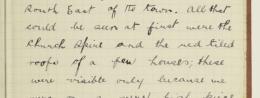 South East of its town. All that
could be seen at first were the
Church Spire and the red tiled
roofs of a few houses; these
were visible only because we